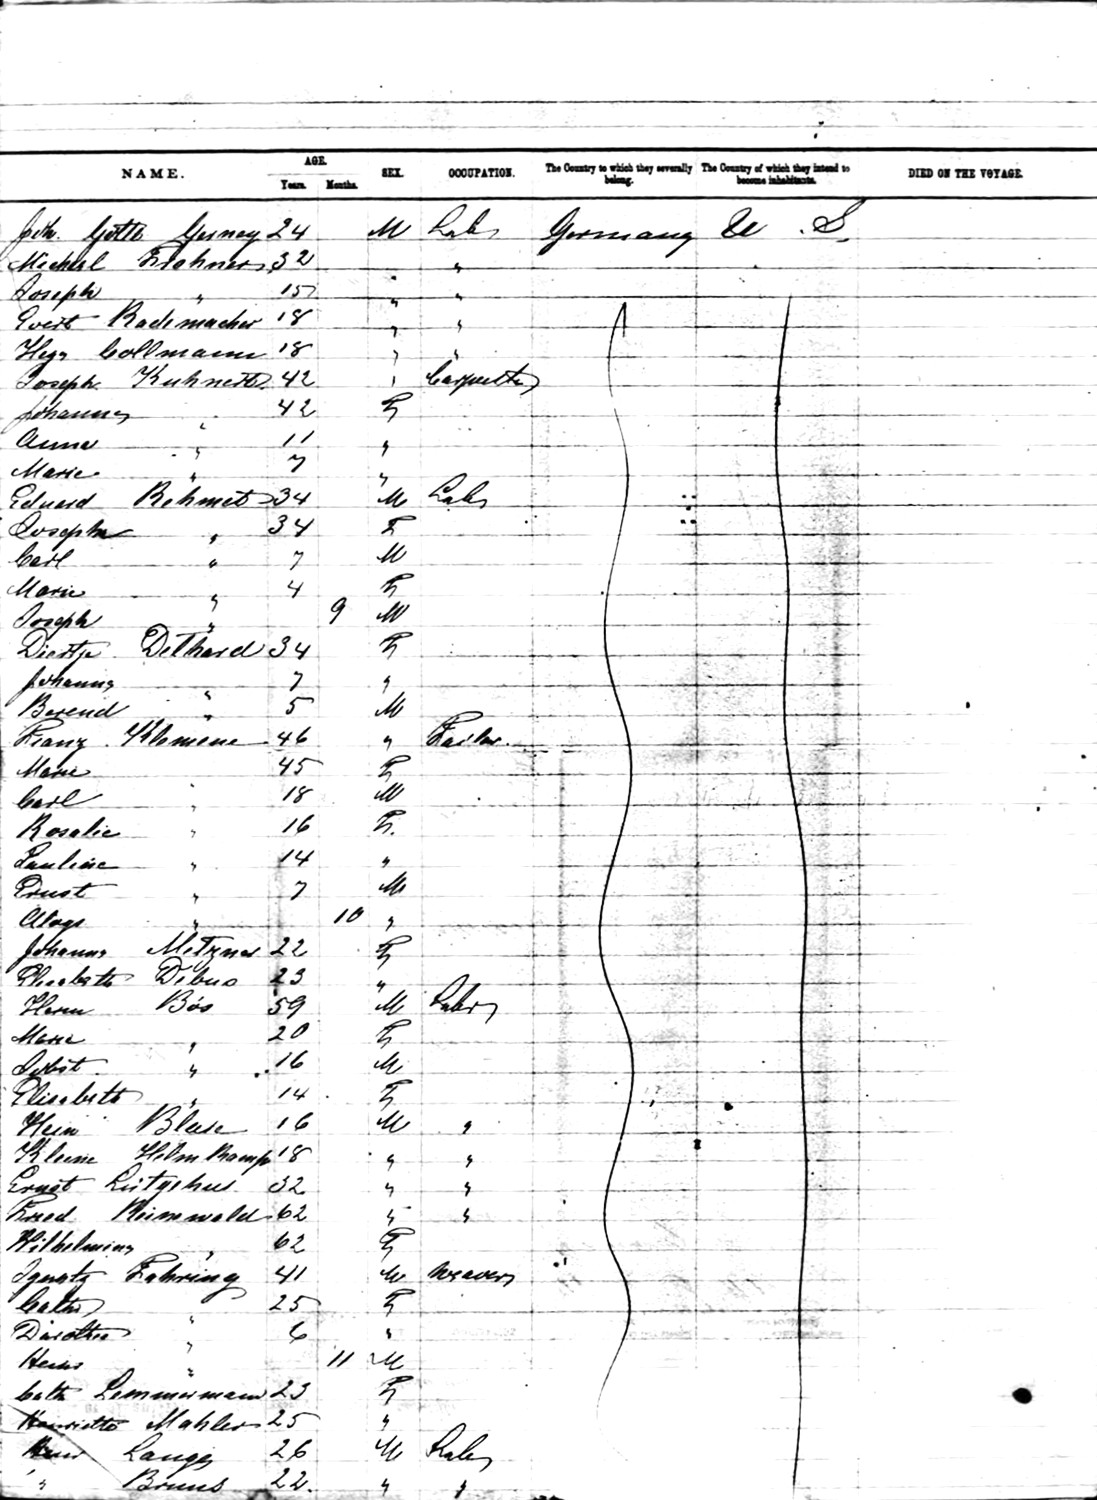 NAME. AGE. SEX. OCCUPATION. The Country to which they severally belong. The Country of which they intend to become inhabitants. DIED ON THE VOYAGE.
Years. Months.
Joh. Gottl 24 M Labr Germany U. S.
Michael 32 " "
Joseph " 15 " "
Evert Rademacher 18 " "
Collmann 18 " "
Joseph Kuhnert 42 " Carpenter
Johanna " 42 F
Anna " 11 "
Marie " 7 "
Eduard Rehmet 34 M Labr
Josepha " 34 F
Carl " 7 M
Marie " 4 F
Joseph " 9 M
Dethard 34 F
Johanna " 7 "
Berend " 5 M
Franz Klemene 46 " Tailor
Marie 45 F
Carl " 18 M
Rosalie " 16 F.
Pauline " 14 "
Ernst " 7 M
Aloys " 10 "
Johanna Metzner 22 F
Elisabeth Dibus 23 "
Harm Bös 59 M Labr
Marie " 20 F
Jobst " 16 M
Elisabeth " 14 F
Hein Blase 16 M "
Helmkamp 18 " "
Ernst 32 " "
Fried Reinwald 62 " "
Wilhelmine " 62 F
Ignatz Fahring 41 M Weaver
Cath " 25 F
Dorothea " 6 "
" 11 M
Cath Lemmermann 23 F
Henriette Mahler 25 "
Lange 26 M Labr
" Bruns 22. " "